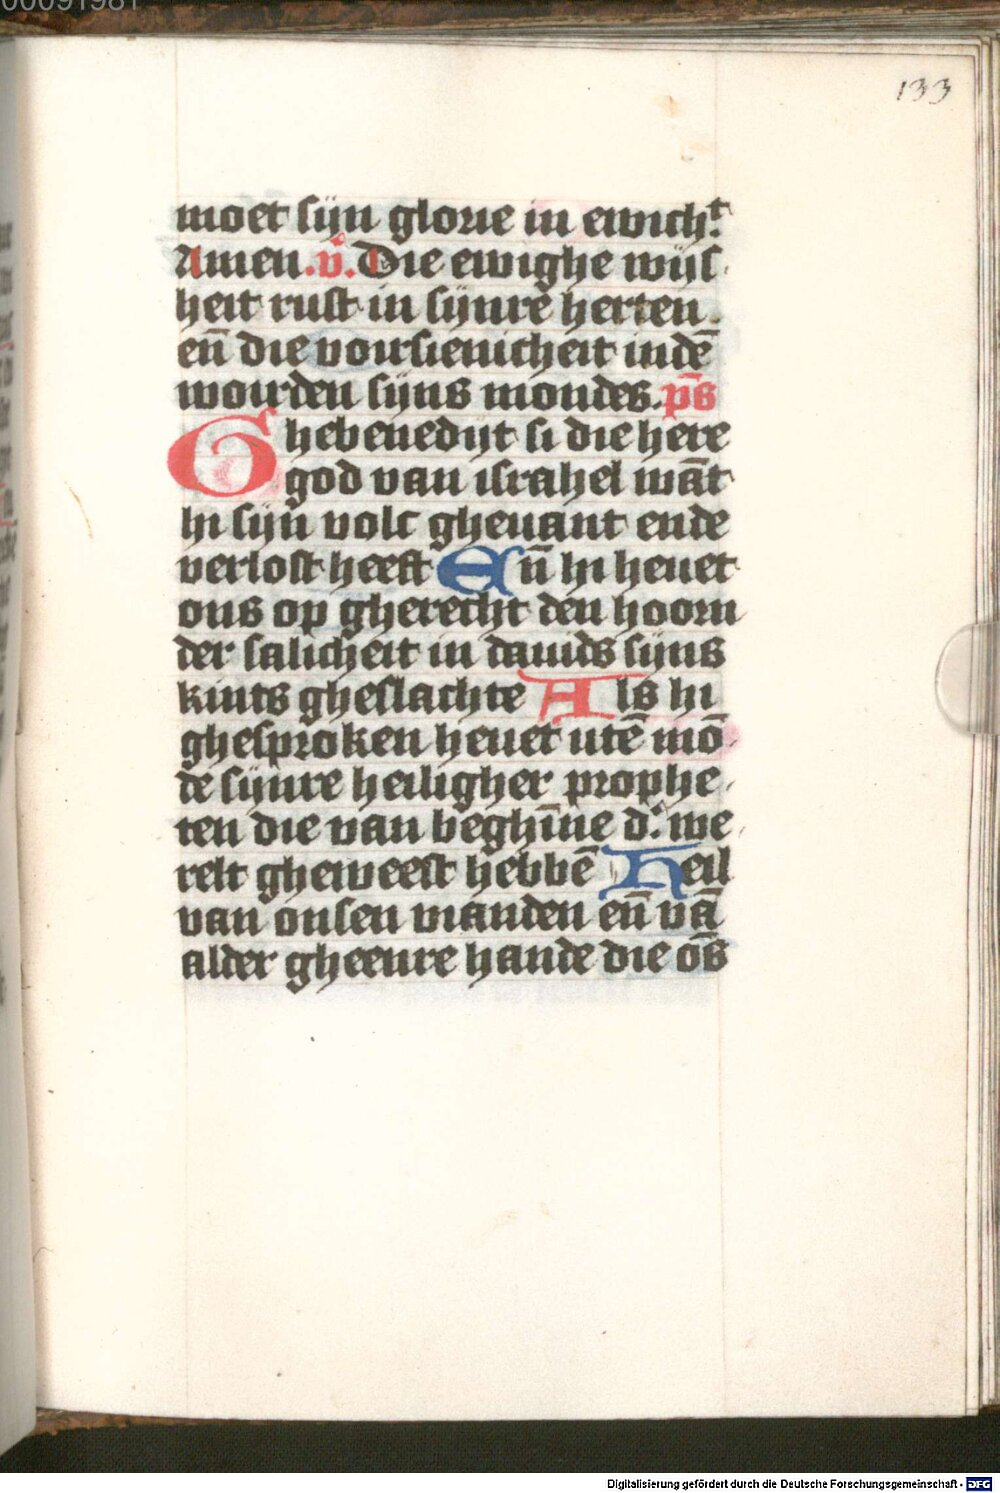 00091981
133
moet sijn glorie in ewicht.
Amen. v̄. Die ewighe wijs
heit rust in sijnre herten.
eñ die voirsienicheit indē
woirden sijns mondes. p̄s
Ghebenedijt si die here
god van israhel wāt
hi sijn volc gheuant ende
verlost heeft Eñ hi heuet
ons op gherecht den hoorn
der salicheit in dauids sijns
kints gheslachte Als hi
ghesproken heuet utē mō
de sijnre heiligher prophe
ten die van beghīne d'. we
relt gheweest hebbē Heil
van onsen vianden eñ vā
alder gheenre hande die ōs
Digitalisierung gefördert durch die Deutsche Forschungsgemeinschaft - DFG